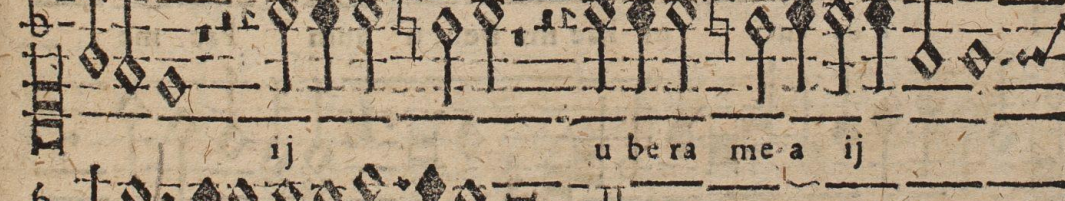 ij u be ra me a ij